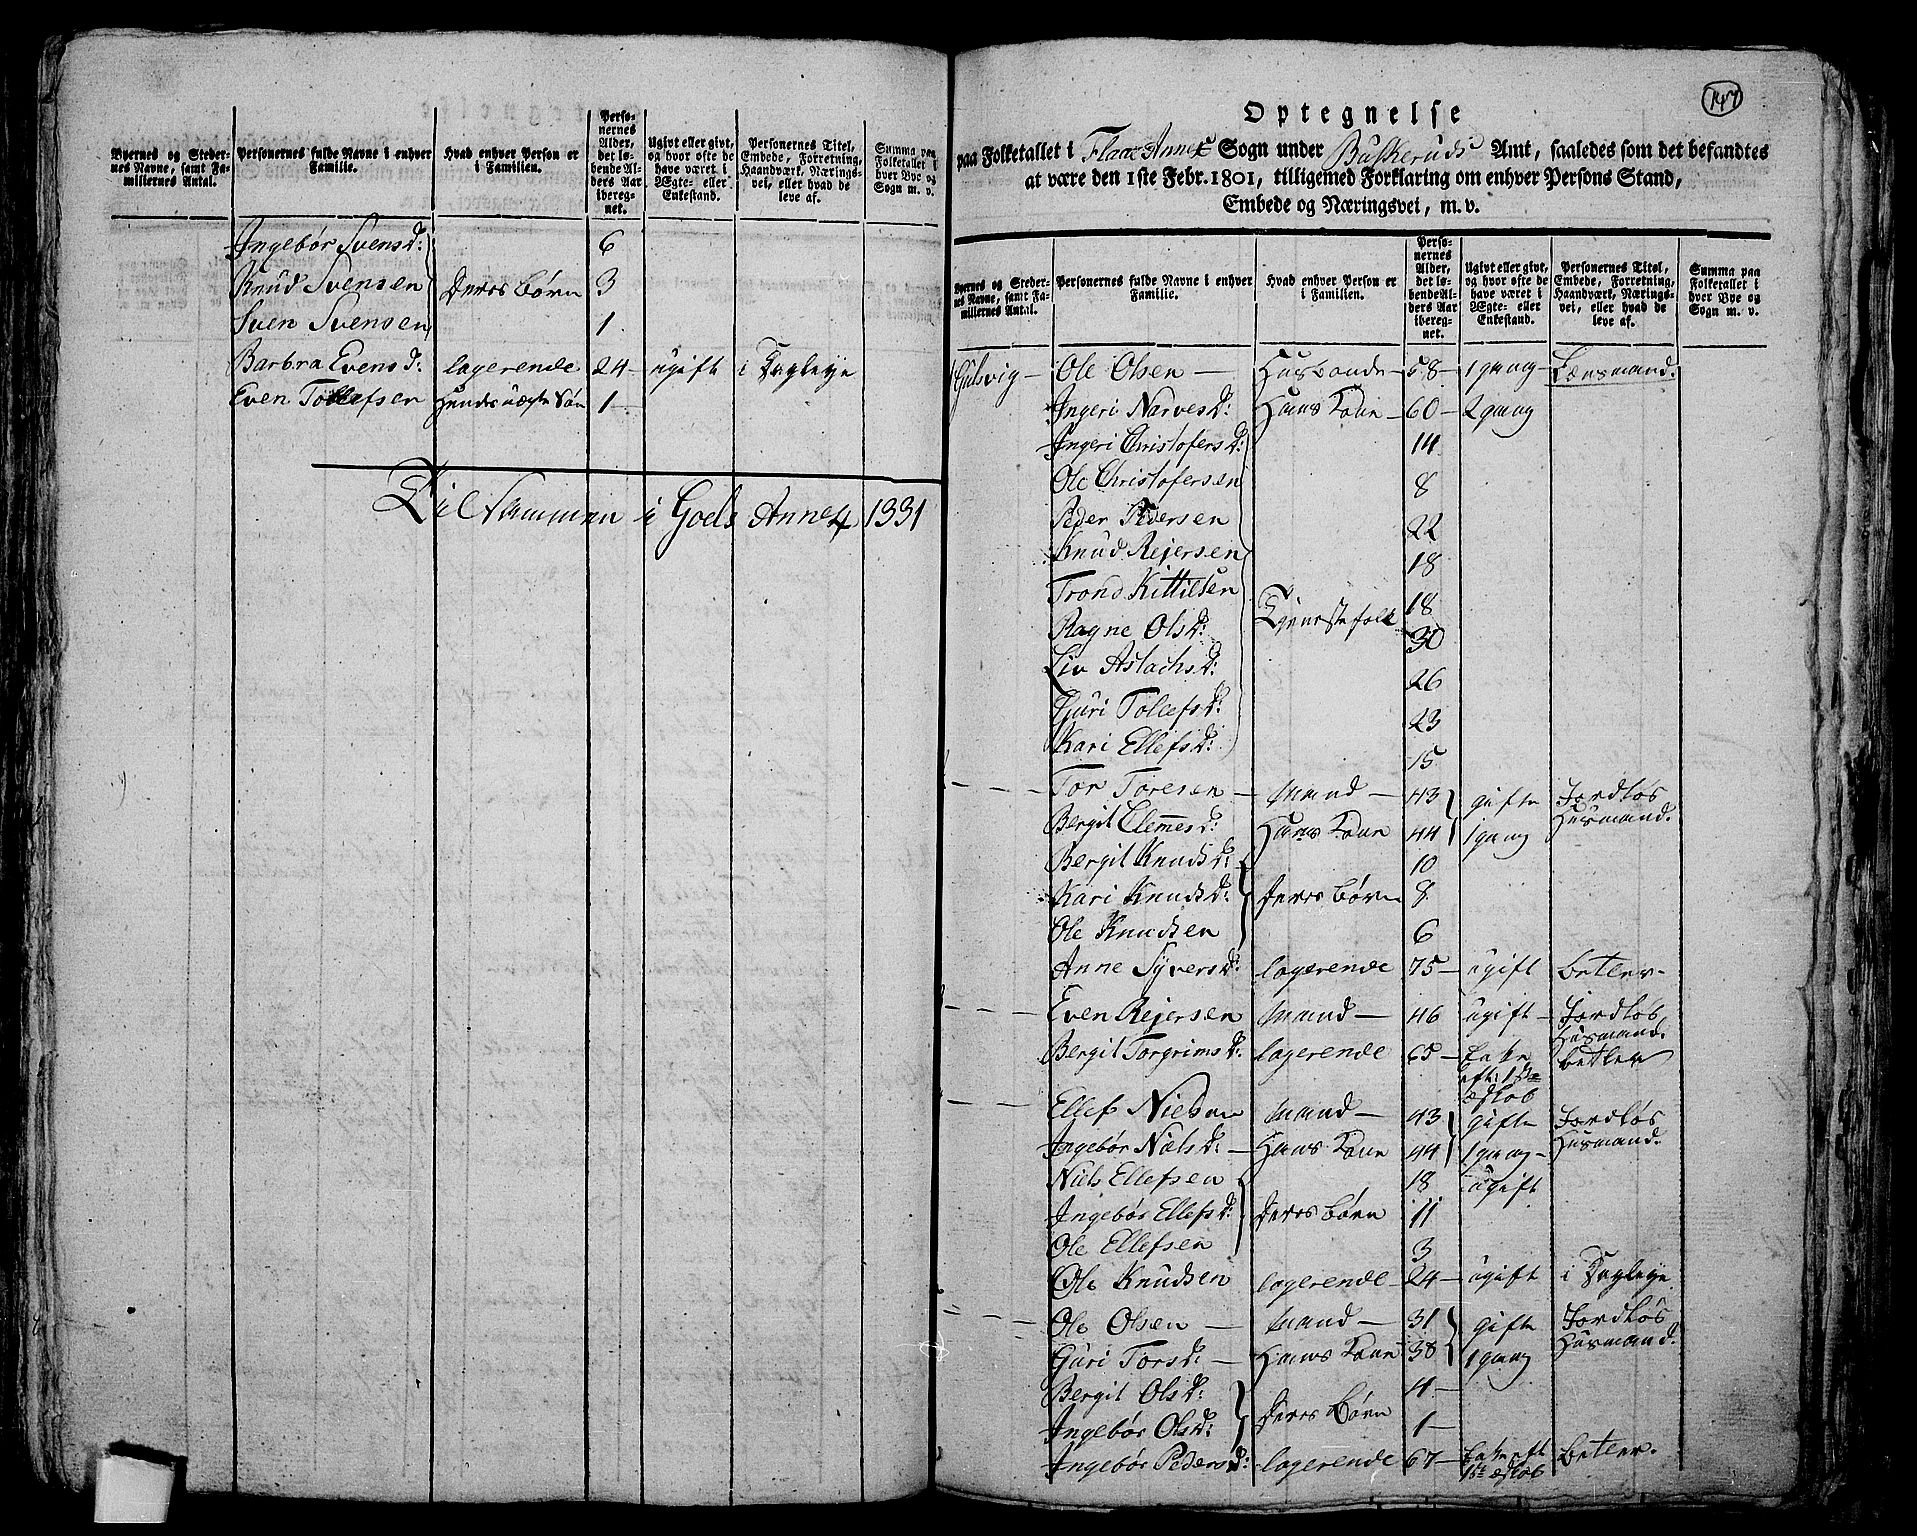 Byernes og Stedernes Navne, samt Familiernes Antal. | Personernes fulde Navne i enhver Familie. | Hvad enhver Person er i Familien. | Personernes Alder, det løbende Alders Aar iberegnet. | Ugivt eller givt, og hvor ofte de have været i Ægte- eller Enkestand. | Personernes Titel, Embede, Forretning, Haandværk, Næringsvei, eller hvad de leve af. | Summa paa Folketallet i hver Bye og Sogn m. v.
Ingebør Svensd: 6
Knud Svensen Deres Børn 3
Sven Svensen 1
Barbra Evensd: logerende 24 – ugift i Dagleye
Even Tollefsen Hendes uægte Søn 1 –
Til Sammen i Goels Annex 1331
147
Optegnelse
paa Folketallet i Flaae Annex Sogn under Buskeruds Amt, saaledes som det befandtes
at være den 1ste Febr. 1801, tilligemed Forklaring om enhver Persons Stand,
Embede og Næringsvei, m. v.
Byernes og Stedernes Navne, samt Familiernes Antal. | Personernes fulde Navne i enhver Familie. | Hvad enhver Person er i Familien. | Personernes Alder, det løbende Alders Aar iberegnet. | Ugivt eller givt, og hvor ofte de have været i Ægte- eller Enkestand. | Personernes Titel, Embede, Forretning, Haandværk, Næringsvei, eller hvad de leve af. | Summa paa Folketallet i hver Bye og Sogn m. v.
Gulsvig – Ole Olsen – Husbonde – 58 – 1 gang – Lensmand.
Ingeri Narvesd: Hans Kone – 60 – 2 gang
Ingeri Christofersd: 14
Ole Christofersen 8
Peder Pedersen 22
Knud Rejersen 18
Trond Kittilsen 18
Ragne Olsd: Tjenestefolk 30
Liv Aslachsd: 26
Guri Tolefsd: 23
Kari Ellefsd: 15
Tor Toresen – Mand – 43 gifte Jordløs
Bergit Clemmesd: Hans Kone 44 1 gang Husmand.
Bergit Knudsd: 10
Kari Knudsd: Deres Børn 8
Ole Knudsen 6
Anne Syversd: logerende 75 – ugift betler –
Even Rejersen Mand – 46 ugift – Jordløs
Husmand.
Bergit Torgrimsd: logerende 65 – Enke betler
eft: 1ste
Ægteskab
Ellef Nielsen Mand – 43 gifte Jordløs
Ingebør Nielsd: – Hans Kone 44 1 gang – Husmand.
Niels Ellefsen 18 ugift
Ingebør Ellefsd: Deres Børn 11
Ole Ellefsen 3
Ole Knudsen logerende – 24 – ugift i Dagleye
Ole Olsen – Mand – 31 gifte Jordløs
Guri Torsd: – Hans Kone 38 1 gang Husmand.
Bergit Olsd: 4 –
Ingebør Olsd: Deres Børn 1 –
Ingebør Pedersd: logerende 67 – Enke eft betler.